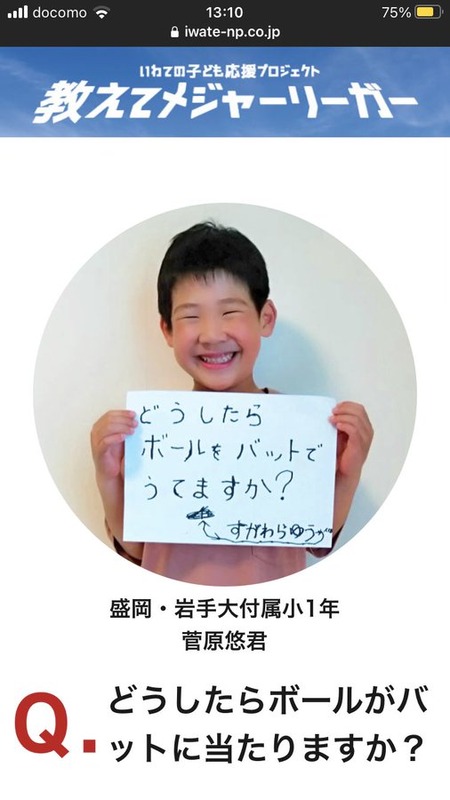 docomo 13:10 75%
iwate-np.co.jp
いわての子ども応援プロジェクト
教えてメジャーリーガー
どうしたら
ボールをバットで
うてますか?
すがわらゆうが
盛岡・岩手大付属小1年
菅原悠君
Q.どうしたらボールがバ
ットに当たりますか？